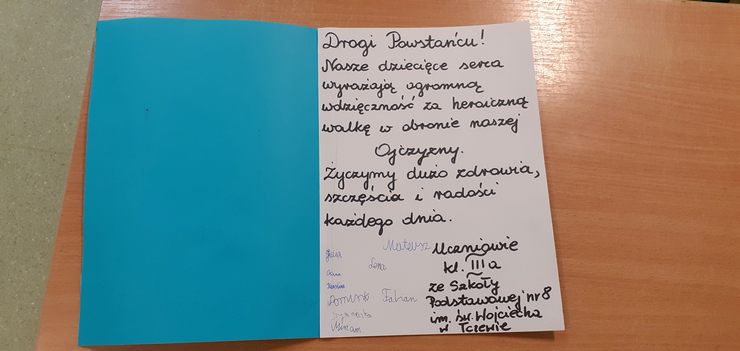 Drogi Powstańcu!
Nasze dziecięce serca
wyrażają ogromną
wdzięczność za heroiczną
walkę w obronie naszej
Ojczyzny.
Życzymy dużo zdrowia,
szczęścia i radości
każdego dnia.
Mateusz
Lena
Dominik Fabian
Miriam
Uczniowie
kl. IIIa
ze Szkoły
Podstawowej nr 8
im. św. Wojciecha
w Tczewie